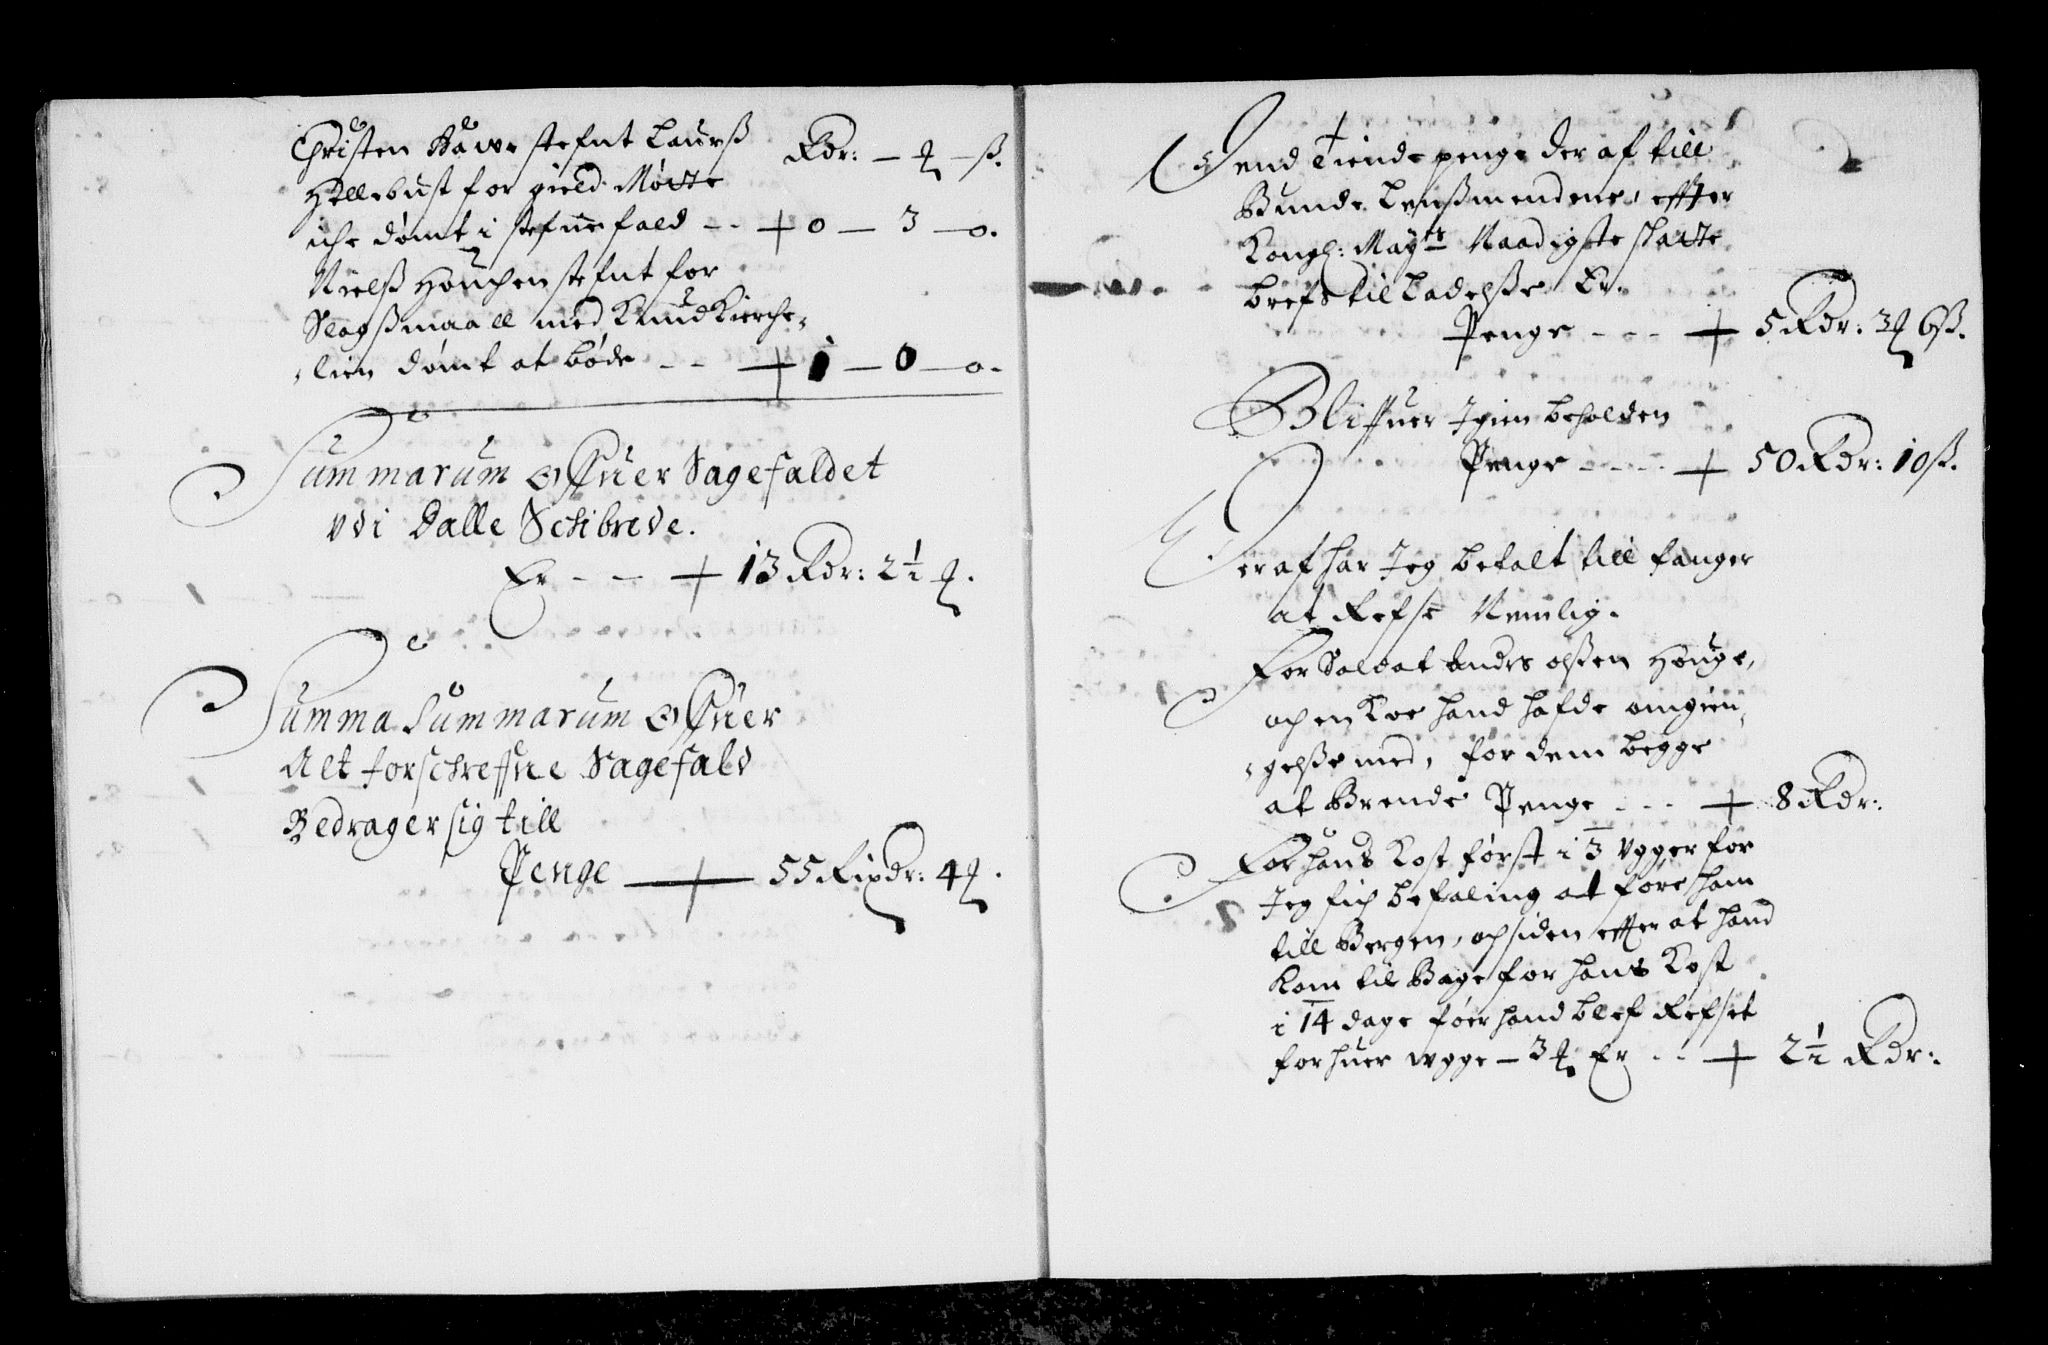 Christen Aawe stefnt Laurß Rdr: — ꝷ — ß.
Hellebust for gield Møtte
iche dømt i stefnefald - - + 0 — 3 — 0.
Nielß Houchen stefnt for
Slagßmaall med Knud Kierche=
=lien dømt at bøde - - + 1 — 0 — 0.
Summarum Offuer Sagefaldet
Vdi Dalle Schibrede.
Er - - - + 13 Rdr: 2½ ꝷ.
Summa Summarum Offuer
Alt forschreffne Sagefald
Bedrager sig till
Penge — + — 55 Rixdr: 4 ꝷ.
End Tiende penge der af till
Bunde Lenßmendene, effter
Kongl: Mayts Naadigste skatte
brefs tilladelße Er
Penge - - - + 5 Rdr: 3 ꝷ 6 ß.
Bliffuer Igien beholden
Penge - - - - + 50 Rdr: 10 ß.
Deraf har Jeg betalt till fanger
at Refse Nemlig.
For Soldat Andrs olßen Houge,
och en Koe hand hafde omgien=
=gelße med, for dem begge
at Brende Penge - - - + 8 Rdr:
For hans Kost først i 3 Vgger før
Jeg fich befaling at føre ham
till Bergen, och siden effter at hand
Kom til Bage for hans Kost
i 14 dage føer hand blef Refset
for huer wgge — 3 ꝷ Er - - + 2½ Rdr: